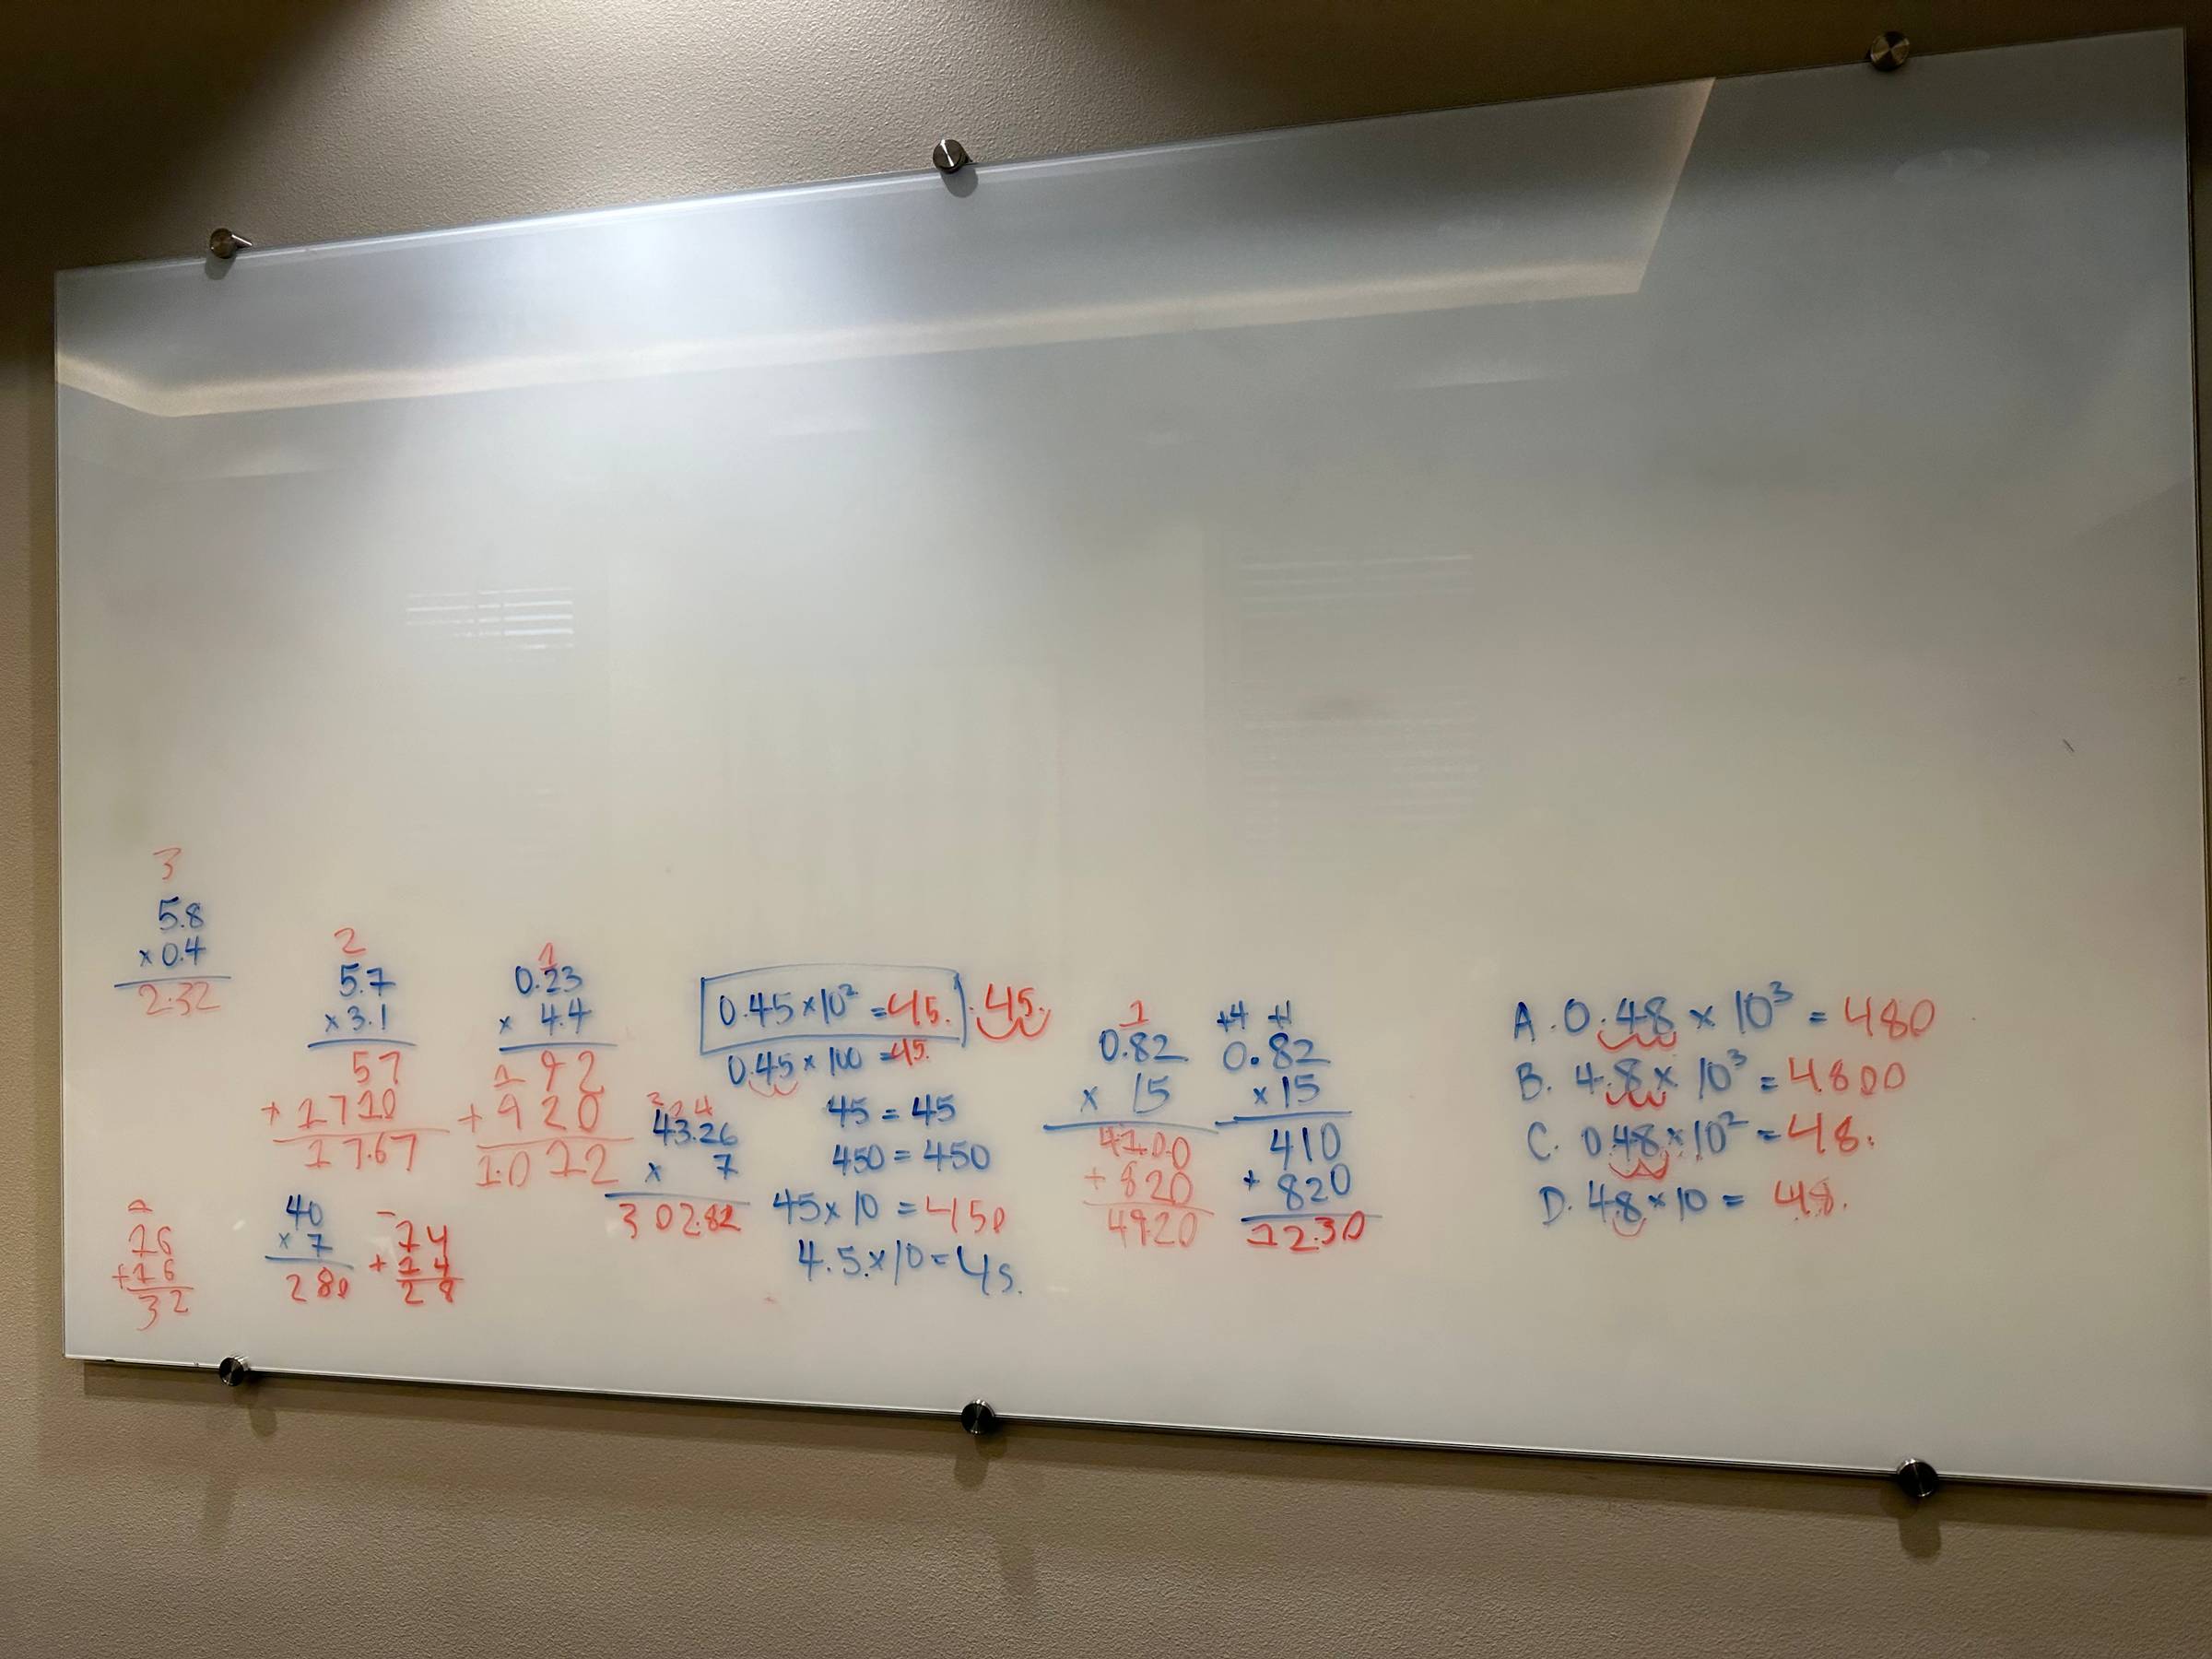 3
5.8
× 0.4
2.32
2
5.7
× 3.1
57
+ 1710
17.67
1
0.23
× 4.4
1
92
+ 920
1.012
16
+16
32
40
× 7
280
14
+ 14
28
2 1 4
43.26
× 7
302.82
0.45 × 10² = 45. 45.
0.45 × 100 = 45.
45 = 45
450 = 450
45 × 10 = 450
4.5 × 10 = 45.
1
0.82
× 15
4100
+ 820
4920
+4 +1
0.82
× 15
410
+ 820
12.30
A. 0.48 × 10³ = 480
B. 4.8 × 10³ = 4800
C. 0.48 × 10² = 48.
D. 4.8 × 10 = 48.